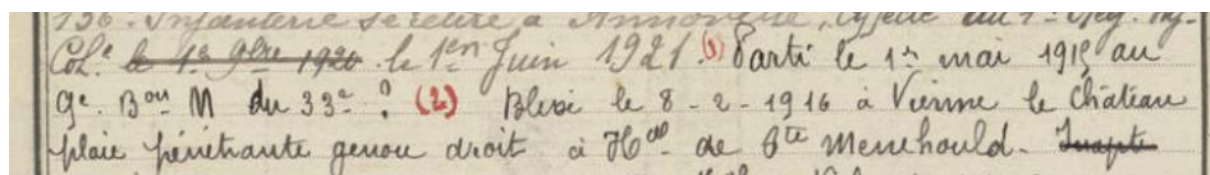 136e Infanterie se retire à Annonville, affecté au 1er Rég. Inf.
Colle le 1er 9bre 1920 le 1er Juin 1921. (1) Parti le 1er mai 1915 au
9e Bon M du 33e ? (2) Blessé le 8-2-1916 à Vienne le Château
plaie pénétrante genou droit à Hal de Ste Menehould. Inapte